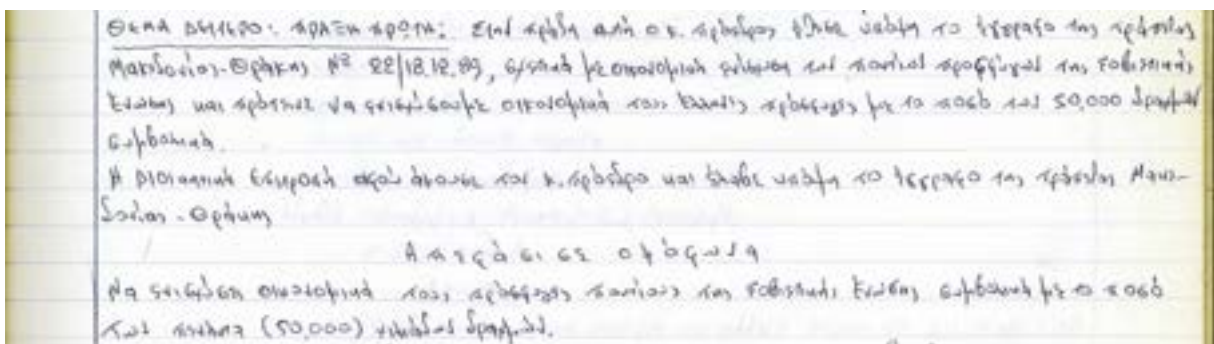 ΘΕΜΑ ΔΕΥΤΕΡΟ: ΠΡΑΞΗ ΠΡΩΤΗ: Στην πράξη αυτή ο κ. πρόεδρος έθεσε υπόψη το έγγραφο της τράπεζας
Μακεδονίας-Θράκης Νο 22/18.12.89, σχετικά με οικονομική ενίσχυση των ποντίων προσφύγων της Σοβιετικής
Ένωσης και πρότεινε να ενισχύσουμε οικονομικά τους Έλληνες πρόσφυγες με το ποσό των 50.000 δραχμών
συμβολικά.
Η Διοικητική Επιτροπή αφού άκουσε τον κ. πρόεδρο και έλαβε υπόψη το έγγραφο της τράπεζας Μακε-
δονίας - Θράκης
Αποφάσισε ομόφωνα
Να ενισχύσει οικονομικά τους πρόσφυγες ποντίους της Σοβιετικής Ένωσης συμβολικά με το ποσό
των πενήντα (50.000) χιλιάδων δραχμών.